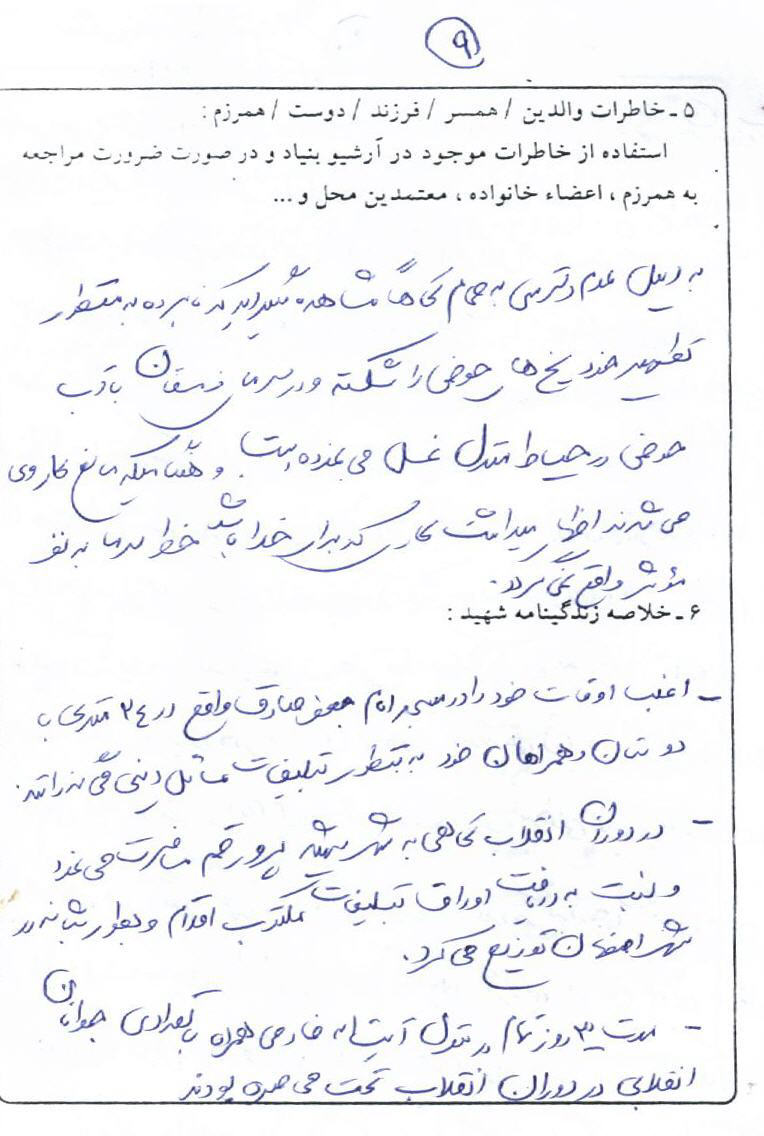 ۹
۵ ـ خاطرات والدین / همسر / فرزند / دوست / همرزم :
استفاده از خاطرات موجود در آرشیو بنیاد و در صورت ضرورت مراجعه
به همرزم ، اعضاء خانواده ، معتمدین محل و ...
به دلیل عدم دسترسی به حمام گاهاً مشاهده میگردید که نامبرده به منظور
تطهیر خود یخ های حوض را شکسته و در سرمای زمستان با آب
حوض در حیاط منزل غسل می نموده است و هنگامیکه مانع کار وی
می شدند اظهار میداشت کاری که برای خدا باشد خطا سرما به نفر
مؤثر واقع نمی گردد.
۶ ـ خلاصه زندگینامه شهید :
ـ اغلب اوقات خود را در مسجد امام جعفر صادق واقع در ۲۴ متری با
دوستان و همراهان خود به منظور تبلیغات مسائل دینی می گذراند.
ـ در دوران انقلاب گاهی به شهر قم مسافرت می نمود
و نسبت به دریافت اوراق تبلیغات مکتوب اقدام و بطور شبانه در
شهر اصفهان توزیع می کرد.
ـ مدت ۳ روز تمام در منزل آیت اله خادمی همراه با تعدادی جوانان
انقلابی در دوران انقلاب تحت محاصره بودند